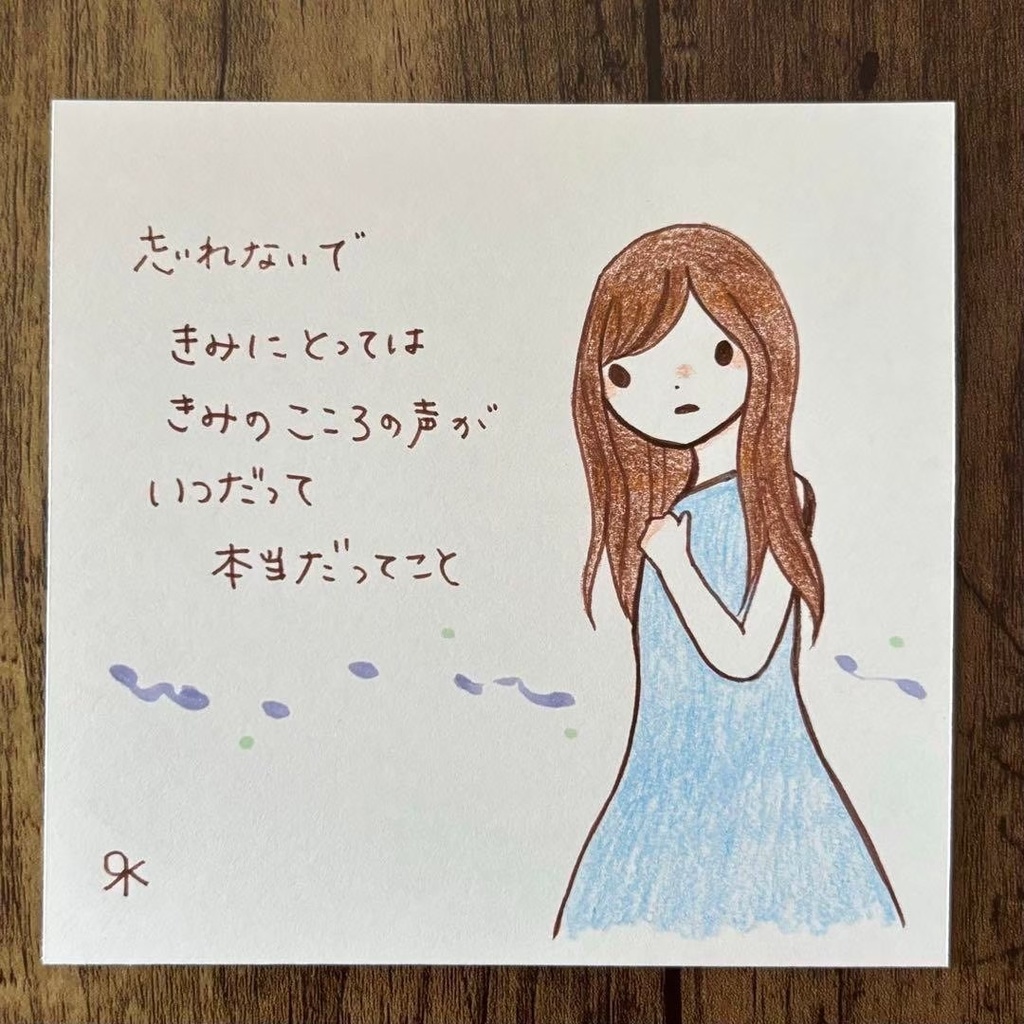 忘れないで
きみにとっては
きみのこころの声が
いつだって
本当だってこと